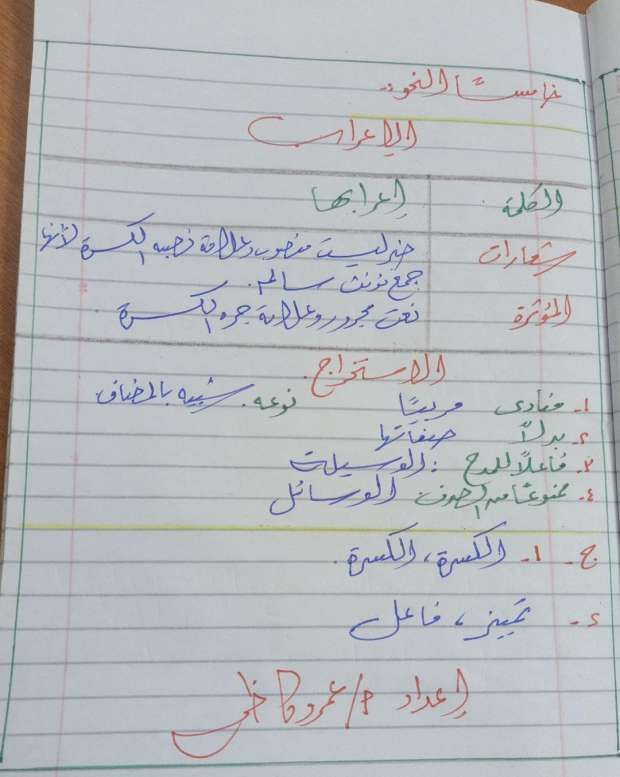 خامسًا النحو:-
الإعراب
الكلمة إعرابها
شعارات خبر ليست منصوب وعلامة نصبه الكسرة لأنها
جمع مؤنث سالم.
المؤثرة نعت مجرور وعلامة جره الكسرة.
الاستخراج.
١- منادى مربيًا نوعه. شبيه بالمضاف
٢- بدلًا صفاتها
٣- فاعلًا للمدح: الوسيلة
٤- ممنوعًا من الصرف الوسائل
ج- ١- الكسرة، الكسرة.
٢- تمييز، فاعل
إعداد أ/ عمرو كاظم